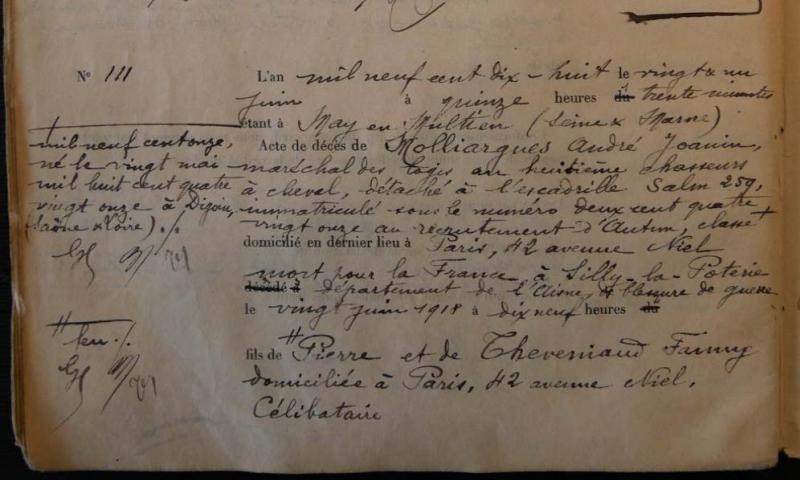 N° 111
L'an mil neuf cent dix-huit le vingt & un
juin à quinze heures du trente minutes
étant à May en Multien (Seine & Marne)
Acte de décès de Molliargues André Joanin,
maréchal des logis au huitième chasseurs
à cheval, détaché à l'escadrille Salm 259,
immatriculé sous le numéro deux cent quatre
vingt onze au recrutement d'Autun, classe +
domicilié en dernier lieu à Paris, 42 avenue Niel
mort pour la France à Silly-la-Poterie
décédé à département de l'Aisne, blessure de guerre
le vingt juin 1918 à dix neuf heures du
fils de " Pierre et de Theveniaud Fanny
domiciliée à Paris, 42 avenue Niel.
Célibataire
+ mil neuf cent onze,
né le vingt mai
mil huit cent quatre
vingt onze à Digoin,
(Saône & Loire) ./.
" feu ./.